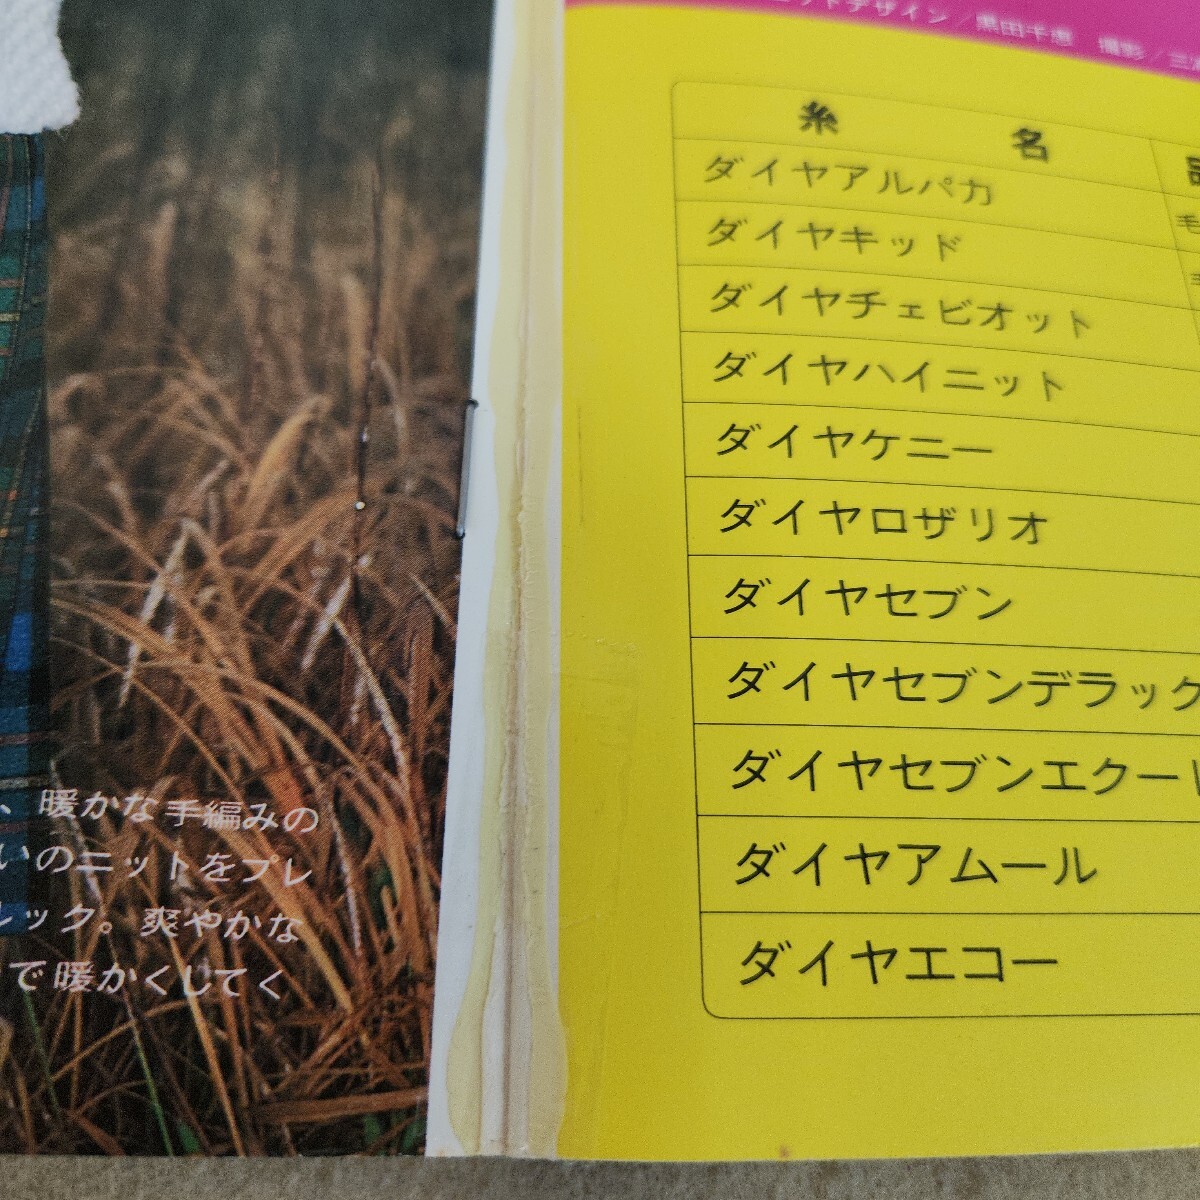 、暖かな手編みの
いのニットをプレ
ルック。爽やかな
で暖かくしてく
ニットデザイン／黒田千恵 撮影／三
糸 名
ダイヤアルパカ
毛
ダイヤキッド
ダイヤチェビオット
ダイヤハイニット
ダイヤケニー
ダイヤロザリオ
ダイヤセブン
ダイヤセブンデラック
ダイヤセブンエクー
ダイヤアムール
ダイヤエコー